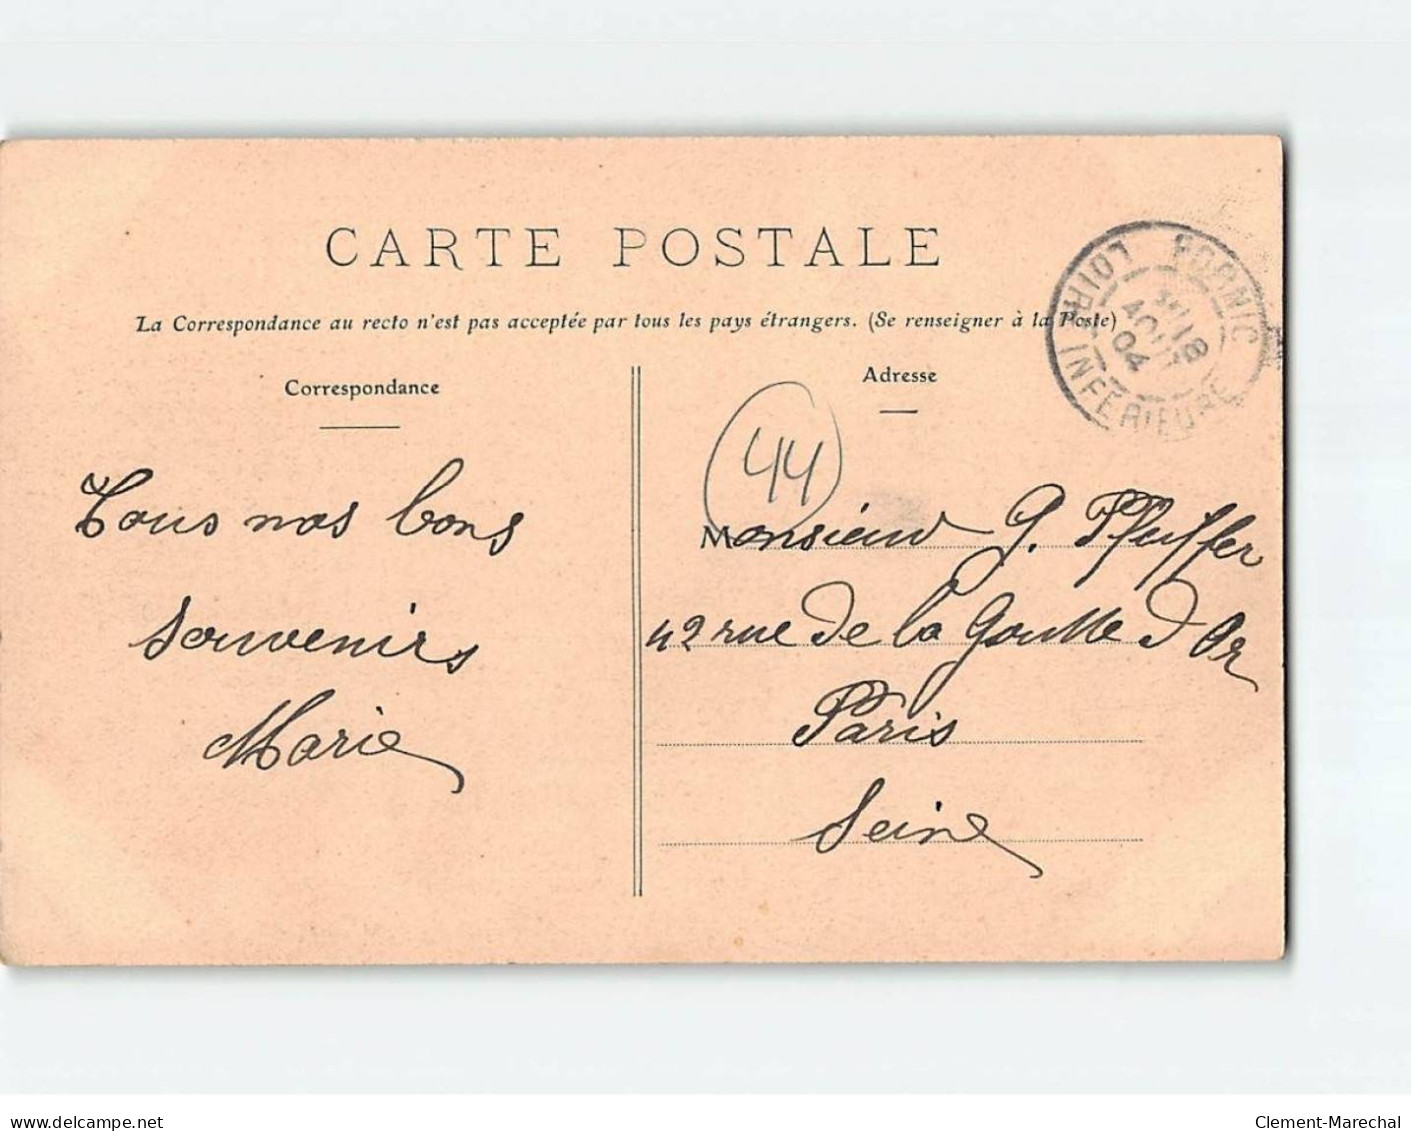 CARTE POSTALE
La Correspondance au recto n'est pas acceptée par tous les pays étrangers. (Se renseigner à la Poste)
PORNIC
LOIRE INFERIEURE
18
AOUT
04
Correspondance
Adresse
44
Tous nos bons
souvenirs
Marie
Monsieur G. Pfeiffer
42 rue de la Goutte d'Or
Paris
Seine
www.delcampe.net
Clement-Marechal